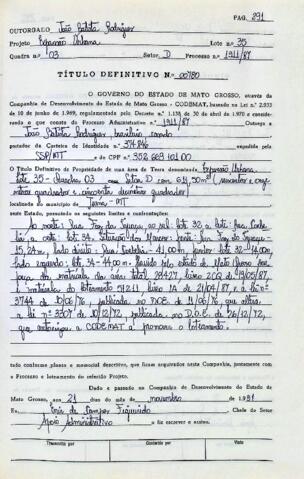 PAG. 291
OUTORGADO João Batista Rodrigues
Projeto Expansão Urbana Lote n.º 35
Quadra n.º 03 Setor D Processo n.º 1911/87
TÍTULO DEFINITIVO N.º 00780
O GOVERNO DO ESTADO DE MATO GROSSO, através da
Companhia de Desenvolvimento do Estado de Mato Grosso - CODEMAT, baseado na Lei n.º 2.933
de 10 de junho de 1.969, regulamentada pelo Decreto n.º 1.138 de 30 de abril de 1.970 e considerando
o que consta do Processo Administrativo n.º 1911/87 Outorga a
João Batista Rodrigues brasileiro casado
portador da Carteira de Identidade n.º 374.846 expedida
SSP/MT e do CPF n.º 352 663 101 00
O Título Definitivo de Propriedade de uma área de Terra denominada Expansão Urbana
Lote 35 - Quadra 03 Setor D com
metros quadrados e cinquenta decímetros quadrados
localizado no município de MT
neste Estado, possuindo os seguintes limites e confrontações:
Ao norte: lote 33 a leste:
a oeste: lote 34.
lado direito 41,00m 39-44,00m
lado esquerdo: lote 34-44,00m. Havido pelo estado de Mato Grosso por
força da matrícula da área total 28427, livro 2CQ de 19/05/87,
e matrícula do loteamento livro 1A de 21/04/87, e a lei nº
3744 de 10/06/76, publicada no DOE de 11/06/76 que altera
a lei nº 3307 de 10/12/72, publicada no D.O.E. de 26/12/72,
que autorizou a CODEMAT a promover o loteamento.
tudo conforme planta e memorial descritivo, que ficam arquivados nesta Companhia, juntamente com
o Processo e loteamento do referido Projeto.
Dado e passado na Companhia de Desenvolvimento do Estado de
Mato Grosso, aos 21 dias do mês de novembro de 1.991
Eu, de Campos Figueiredo Chefe do Setor
Apoio Administrativo o fiz escrever e assino.
Transcrito por Conferido por Visto